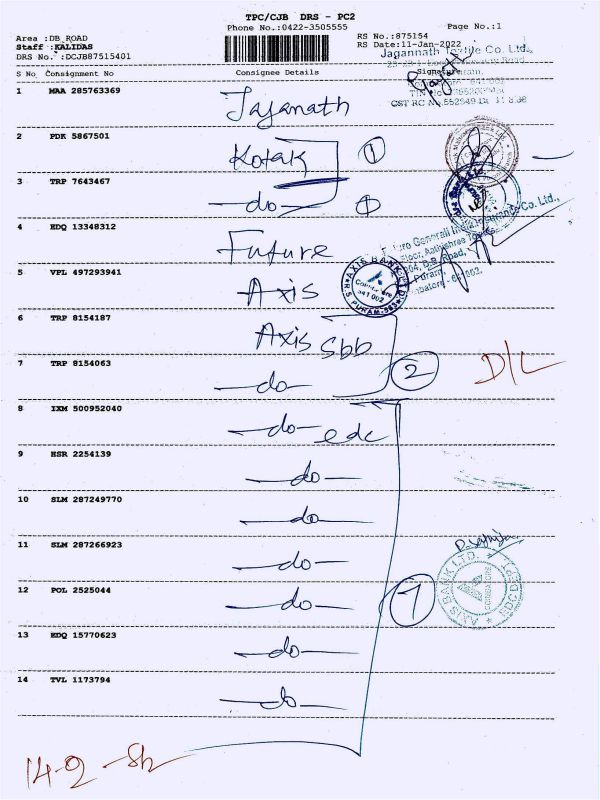 TPC/CJB DRS - PC2
Phone No.:0422-3505555
Page No.:1
Area :DB ROAD
Staff :KALIDAS
DRS No. :DCJB87515401
RS No.:875154
RS Date:11-Jan-2022
Jagannath Textile Co. Ltd.,
S No Consignment No Consignee Details Signature
CST RC No.552649 Dt
1 MAA 285763369 Jaganath
2 PDK 5867501 Kotak 1
3 TRP 7643467 —do— 1
4 EDQ 13348312 Future
Future Generali India Insurance Co. Ltd.,
5 VPL 497293941 Axis
AXIS BANK LTD
R.S PURAM-583
641 002
6 TRP 8154187 Axis Sbb
7 TRP 8154063 —do— 2 D/L
8 IXM 500952040 —do— edc
9 HSR 2254139 —do—
10 SLM 287249770 —do—
11 SLM 287266923 —do—
12 POL 2525044 —do— 7
AXIS BANK LTD.
COIMBATORE
EDC DEPT
13 EDQ 15770623 —do—
14 TVL 1173794 —do—
14-2